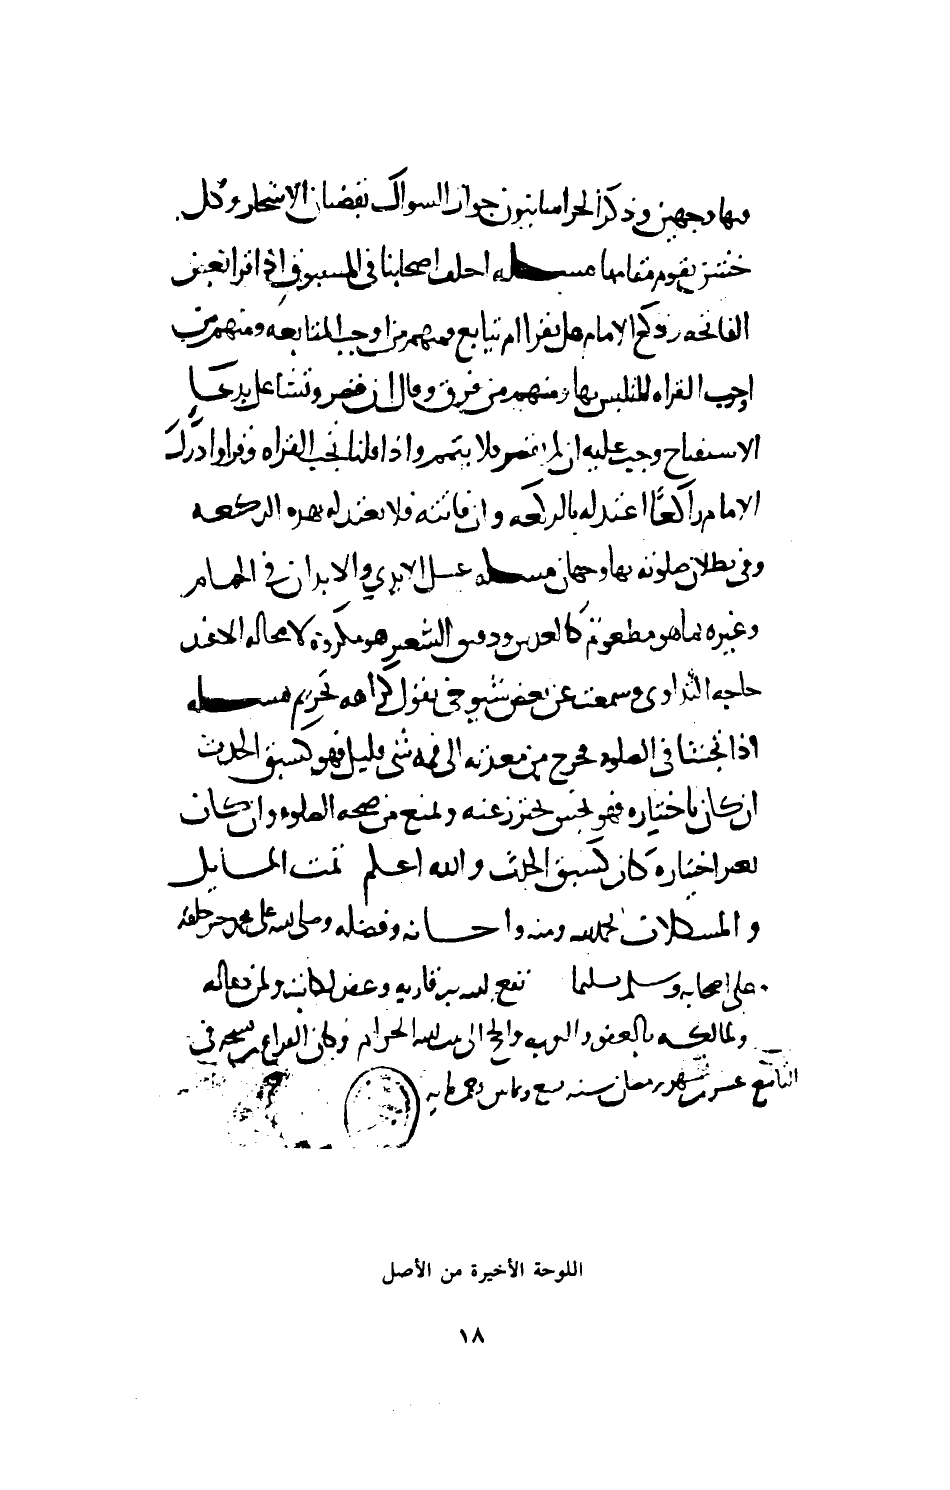 فيها وجهين وذكر الخراسانيون جواز السواك بقضبان الاشجار وكل
خشن يقوم مقامها مسله اختلف اصحابنا في المسبوق اذا قرا بعض
الفاتحه وركع الامام هل يقرا ام يتابع فمنهم من اوجب المتابعه ومنهم من
اوجب القراه للتلبس بها ومنهم من فرق وقال ان قصر وتشاغل بدعا
الاستفتاح وجب عليه ان لم يقصر فلا يتمم واذا قلنا تجب القراه فقرا وادرك
الامام راكعا اعتد له بالركعه وان فاتته فلا يعتد له بهذه الركعه
وفي بطلان صلوته بها وجهان مسله غسل الايدي والابدان في الحمام
وغيره بما هو مطعوم كالعدس ودقيق الشعير هو مكروه لا محاله الا عند
حاجه التداوي وسمعت عن بعض شيوخي يقول كراهه تحريم مسله
اذا تجشا في الصلوه فخرج من معدته الى فمه شي قليل فهو كسبق الحدث
ان كان باختياره فهو نجس يحترز عنه ويمنع من صحه الصلوه وان كان
بغير اختياره كان كسبق الحدث والله اعلم تمت المسايل
والمشكلات بحمد الله ومنه واحسانه وفضله وصلى الله على محمد خير خلقه
وعلى اصحابه وسلم تسليما نفع الله به قاريه وغفر لكاتبه ولمن دعا له
ولمالكه بالعفو والتوبه والحج الى بيت الله الحرام وكان الفراغ من نسخه في
التاسع عشر من شهر رمضان سنه سبع
اللوحة الأخيرة من الأصل
١٨